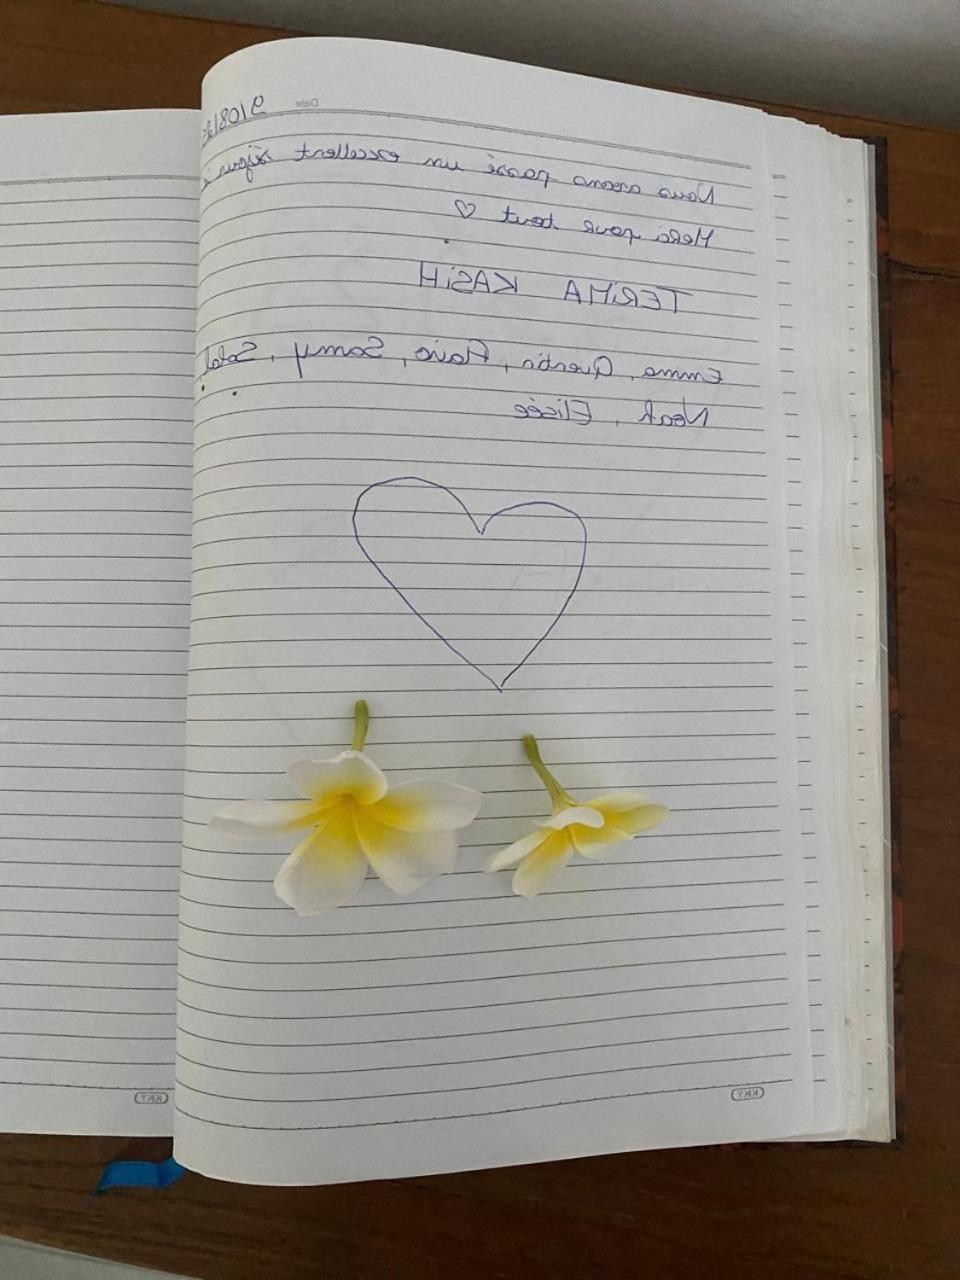 Date
9/08/2
Nous avons passé un excellent séjour
Merci pour tout ♡
TERiMA KASiH
Emma, Quentin, Flavio, Samy,
Noah, Elisée
KKY
KKY